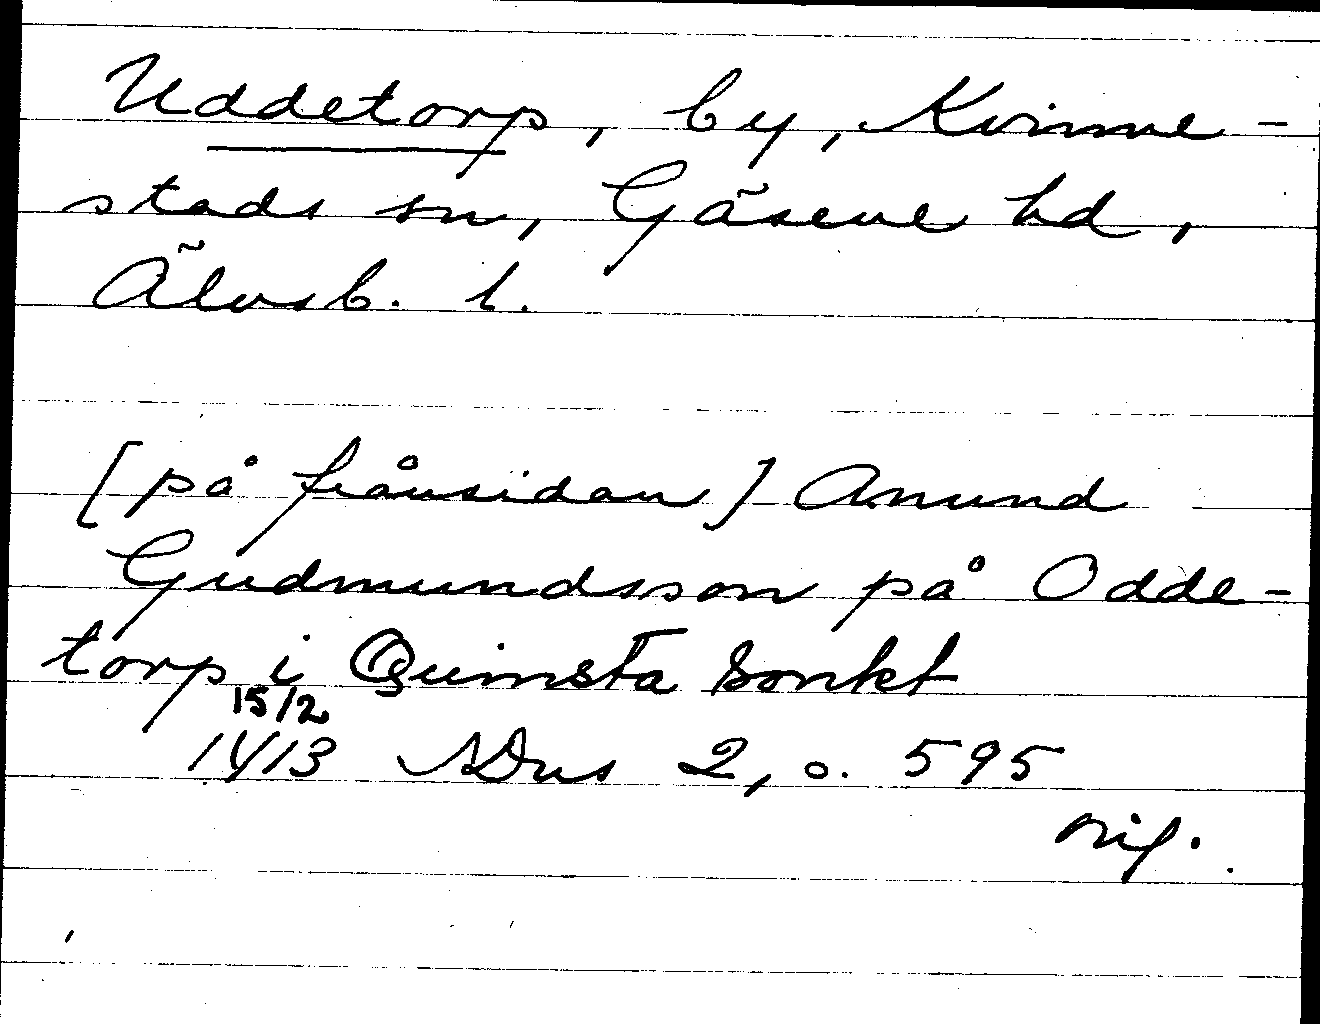 Uddetorp, by, Kvinne-
stads sn, Gäsene hd,
Älvsb. l.
[på frånsidan] Anund
Gudmundsson på Odde-
torp i Quinsta sonkt
15/2
1413 SDns 2, s. 595
orig.